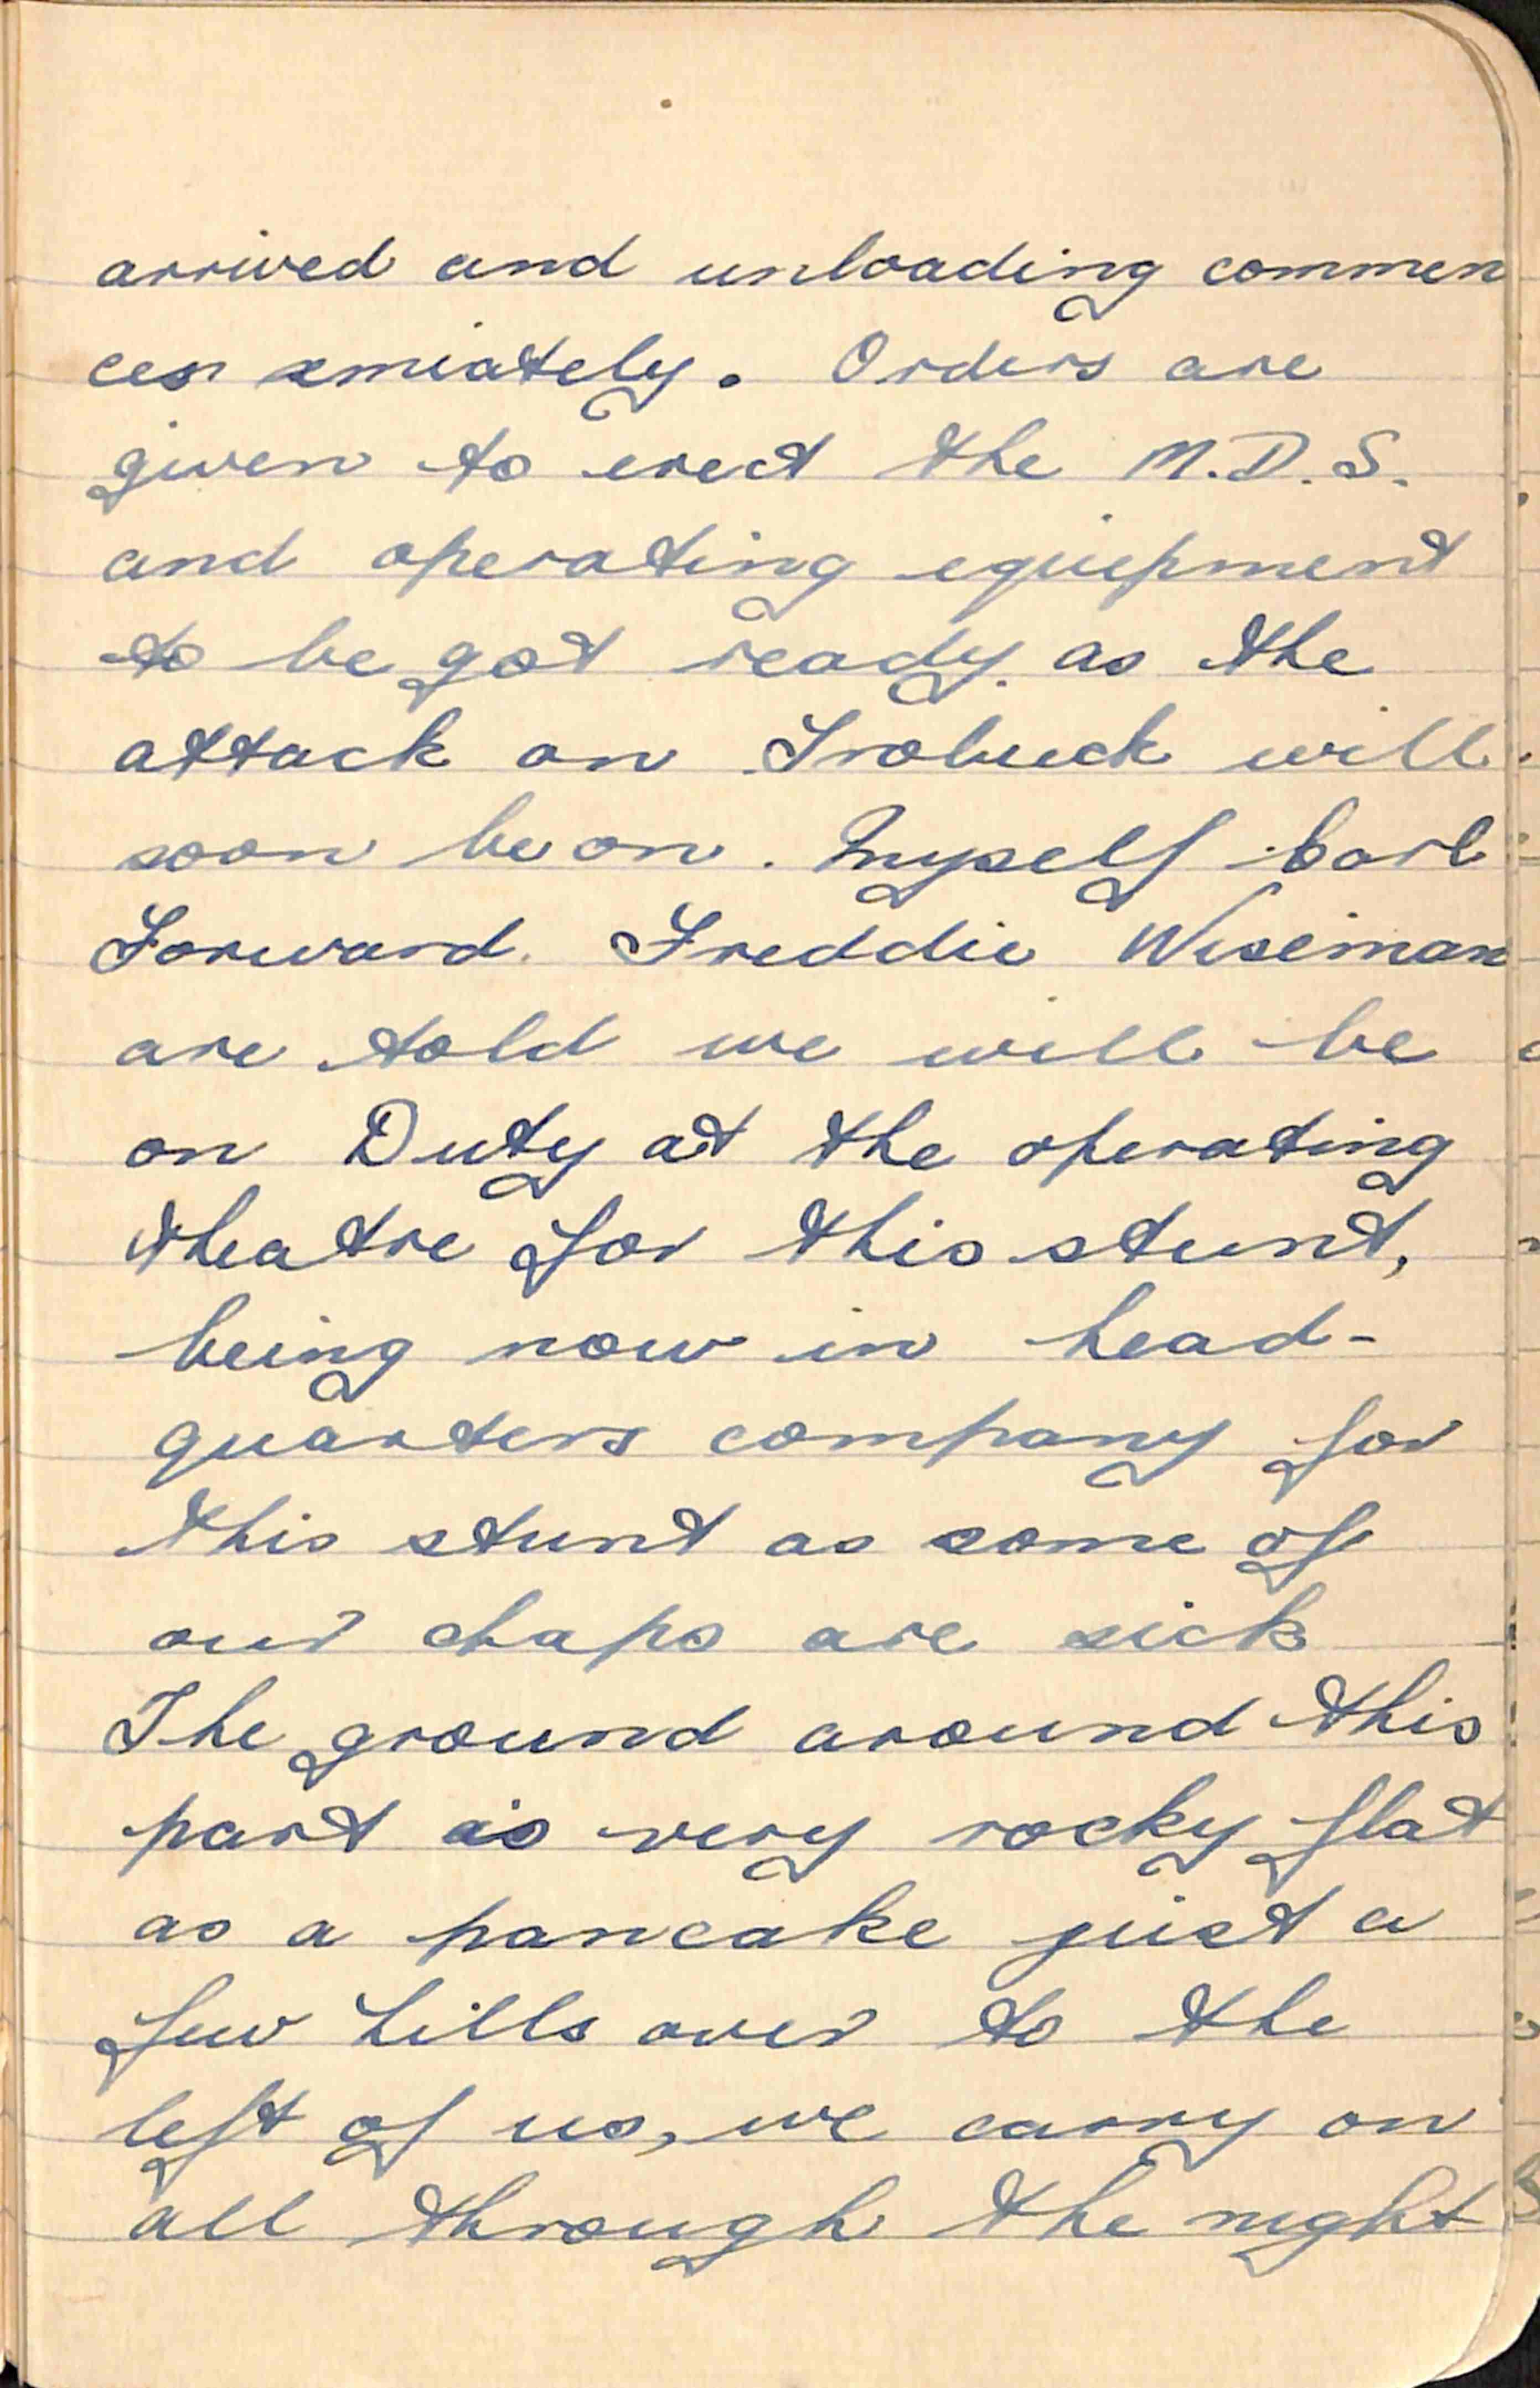 arrived and unloading commen
ces emiately. Orders are
given to erect the M.D.S.
and operating equiepment
to be got ready as the
attack on Trobuck will
soon be on. Myself Carl
Forward. Freddie Wiseman
are told we will be
on Duty at the operating
theatre for this stunt,
being now in head-
quarters company for
this stunt as some of
our chaps are sick
The ground around this
part is very rocky flat
as a pancake just a
few hills over to the
left of us, we carry on
all through the night